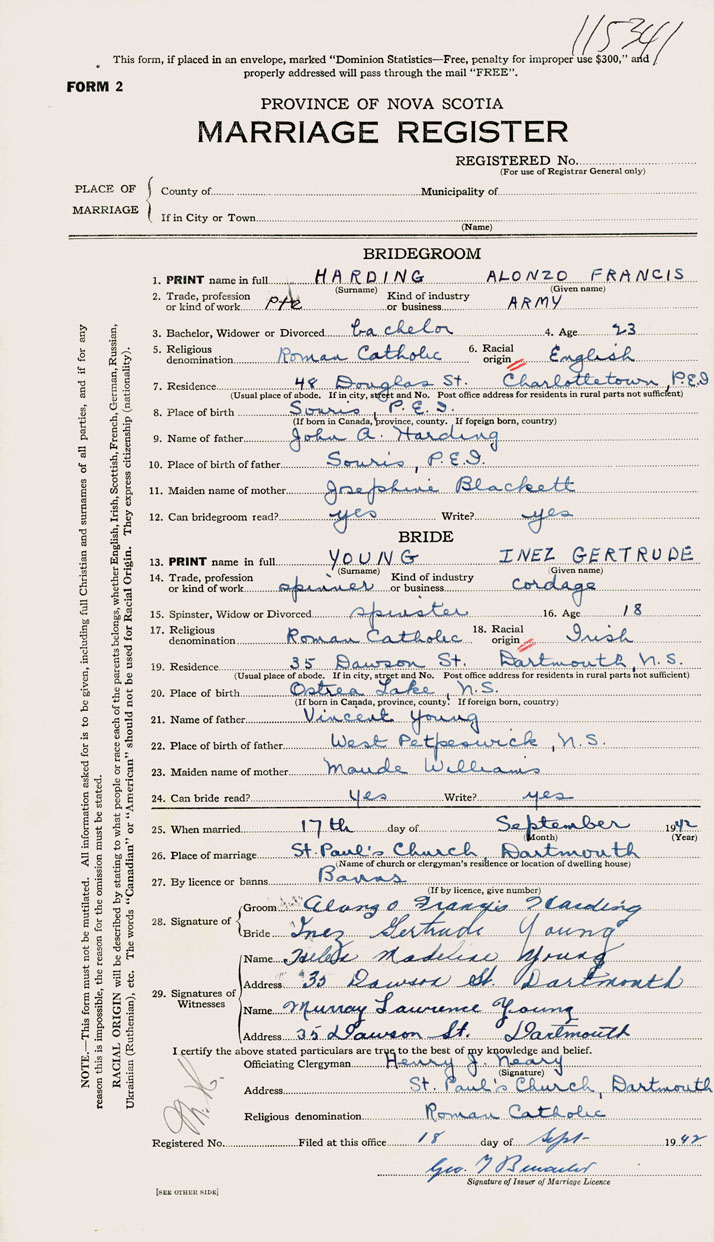 115341
This form, if placed in an envelope, marked "Dominion Statistics—Free, penalty for improper use $300," and
properly addressed will pass through the mail "FREE".
FORM 2
PROVINCE OF NOVA SCOTIA
MARRIAGE REGISTER
REGISTERED No.
(For use of Registrar General only)
PLACE OF MARRIAGE
County of Municipality of
If in City or Town
(Name)
BRIDEGROOM
1. PRINT name in full HARDING ALONZO FRANCIS
(Surname) (Given name)
2. Trade, profession or kind of work Pte Kind of industry or business ARMY
3. Bachelor, Widower or Divorced bachelor 4. Age 23
5. Religious denomination Roman Catholic 6. Racial origin English
7. Residence 48 Douglas St. Charlottetown, P.E.I
(Usual place of abode. If in city, street and No. Post office address for residents in rural parts not sufficient)
8. Place of birth Souris, P.E.I.
(If born in Canada, province, county. If foreign born, country)
9. Name of father John A. Harding
10. Place of birth of father Souris, P.E.I.
11. Maiden name of mother Josephine Blackett
12. Can bridegroom read? yes Write? yes
BRIDE
13. PRINT name in full YOUNG INEZ GERTRUDE
(Surname) (Given name)
14. Trade, profession or kind of work spinner Kind of industry or business cordage
15. Spinster, Widow or Divorced spinster 16. Age 18
17. Religious denomination Roman Catholic 18. Racial origin Irish
19. Residence 35 Dawson St. Dartmouth, N.S.
(Usual place of abode. If in city, street and No. Post office address for residents in rural parts not sufficient)
20. Place of birth Ostrea Lake, N.S.
(If born in Canada, province, county. If foreign born, country)
21. Name of father Vincent Young
22. Place of birth of father West Petpeswick, N.S.
23. Maiden name of mother Maude Williams
24. Can bride read? Yes Write? yes
25. When married 17th day of September 1942
(Month) (Year)
26. Place of marriage St. Paul's Church, Dartmouth
(Name of church or clergyman's residence or location of dwelling house)
27. By licence or banns Banns
(If by licence, give number)
28. Signature of
Groom Alonzo Francis Harding
Bride Inez Gertrude Young
29. Signatures of Witnesses
Name Helen Madeline Young
Address 35 Dawson St. Dartmouth
Name Murray Lawrence Young
Address 35 Dawson St. Dartmouth
I certify the above stated particulars are true to the best of my knowledge and belief.
Officiating Clergyman Henry J. Neary
(Signature)
Address St. Paul's Church, Dartmouth
Religious denomination Roman Catholic
Registered No. Filed at this office 18 day of Sept- 1942
Geo.
Signature of Issuer of Marriage Licence
[SEE OTHER SIDE]
NOTE.—This form must not be mutilated. All information asked for is to be given, including full Christian and surnames of all parties, and if for any
reason this is impossible, the reason for the omission must be stated.
RACIAL ORIGIN will be described by stating to what people or race each of the parents belongs, whether English, Irish, Scottish, French, German, Russian,
Ukrainian (Ruthenian), etc. The words "Canadian" or "American" should not be used for Racial Origin. They express citizenship (nationality).